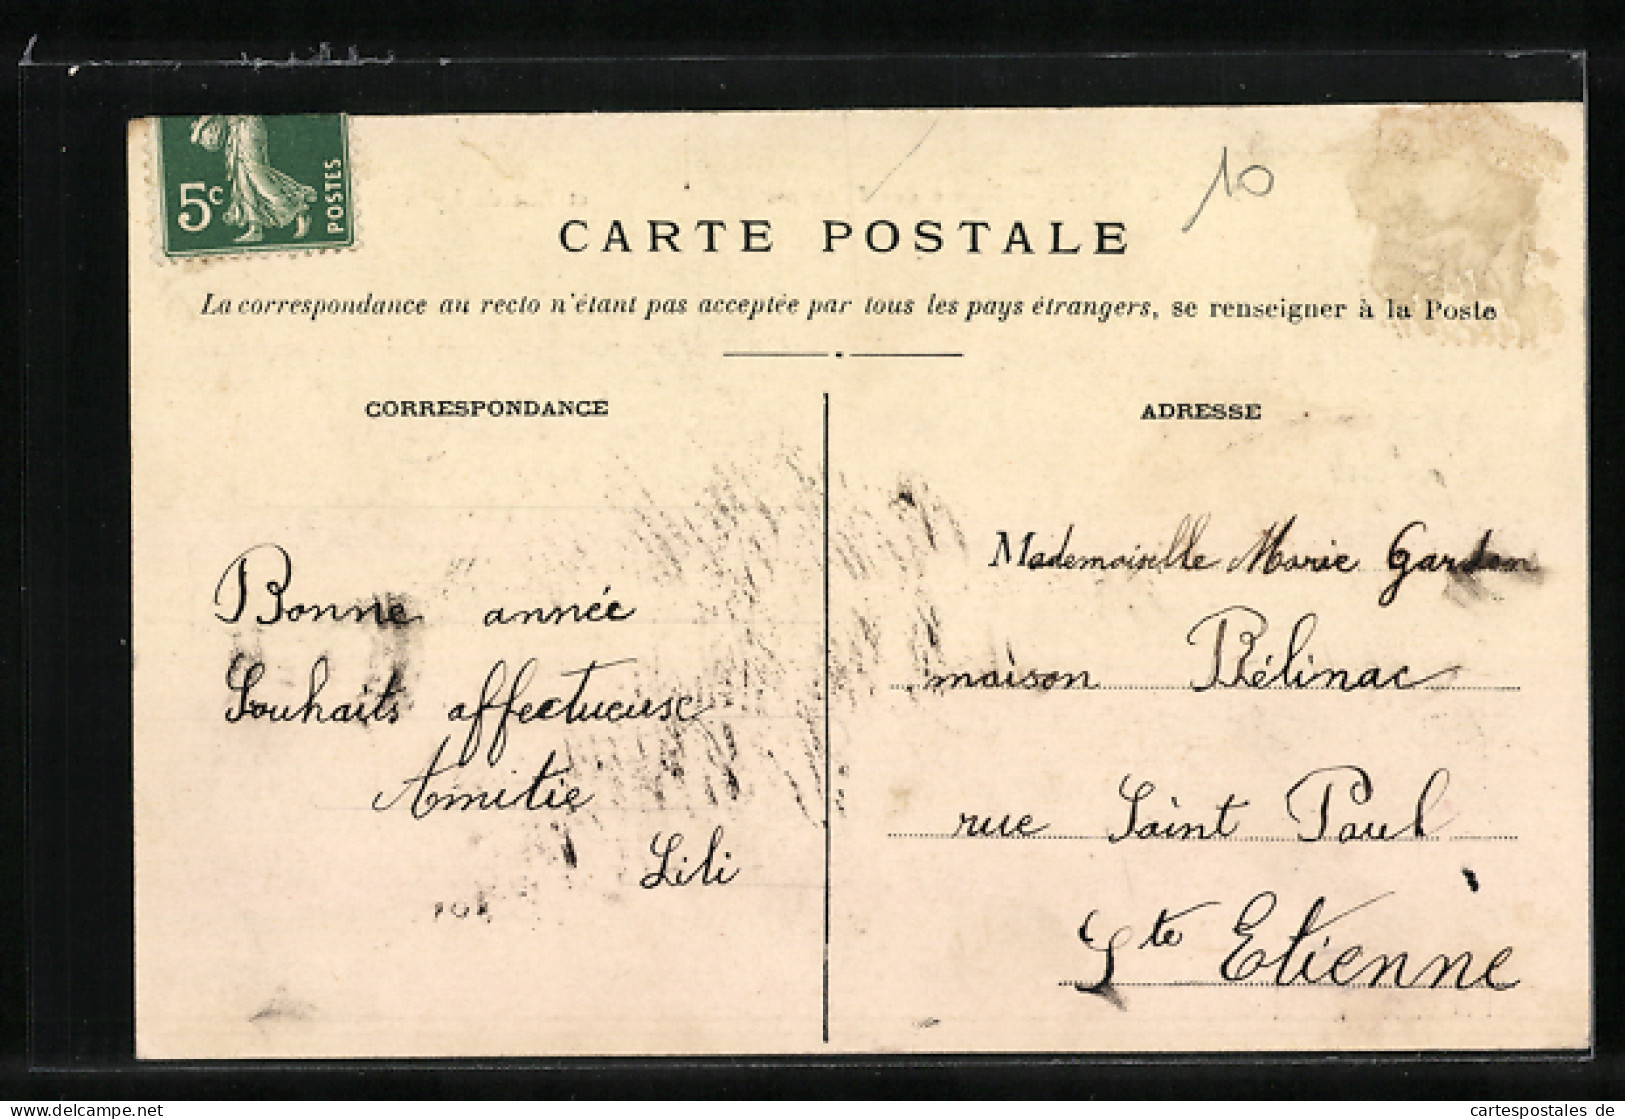 5c
POSTES
10
CARTE POSTALE
La correspondance au recto n'étant pas acceptée par tous les pays étrangers, se renseigner à la Poste
CORRESPONDANCE
Bonne année
Souhaits affectueuse
Amitie
Lili
ADRESSE
Mademoiselle Marie Gardon
maison Bélinac
rue Saint Paul
Ste Etienne
cartespostales de